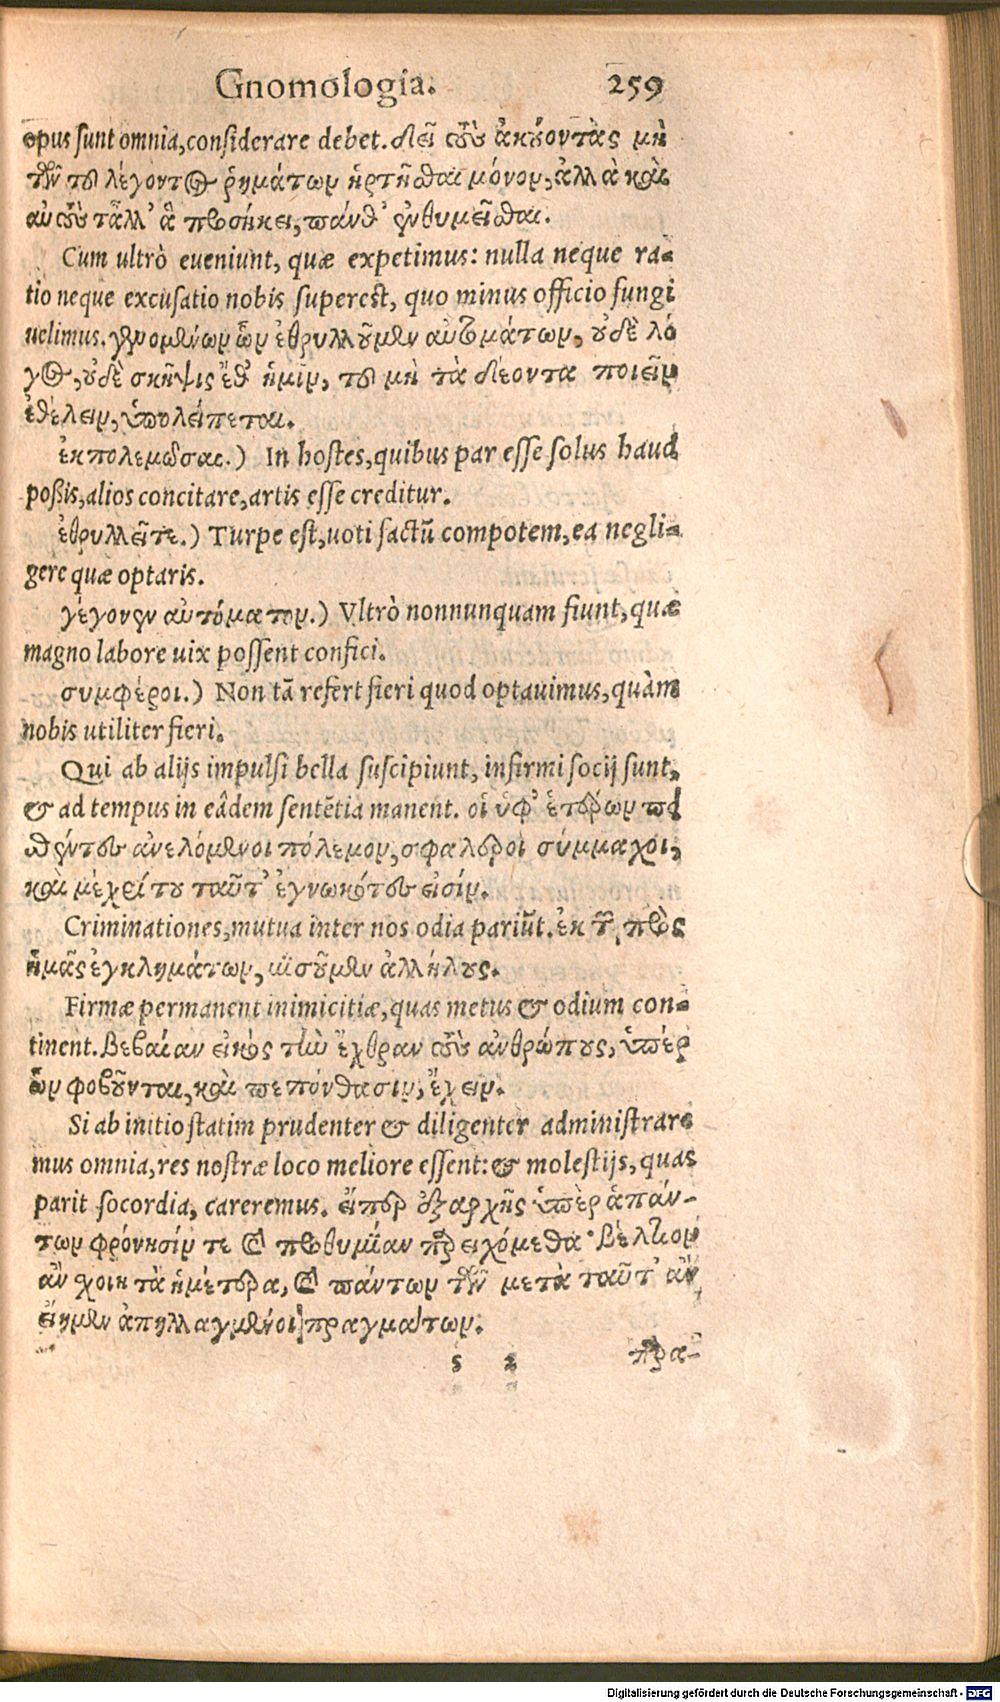 Gnomologia. 259
opus sunt omnia, considerare debet. δεῖ τοὺς ἀκούοντας μὴ
τῶν τοῦ λέγοντος ῥημάτων ἠρτῆσθαι μόνον, ἀλλὰ καὶ
αὐτοὺς τἆλλ' ἃ προσήκει, πάνθ' ἐνθυμεῖσθαι.
Cum ultrò eveniunt, quæ expetimus: nulla neque ra-
tio neque excusatio nobis superest, quo minus officio fungi
uelimus. γενομένων ὧν ἐθρυλλοῦμεν αὐτομάτων, οὐδὲ λό
γος, οὐδὲ σκῆψις ἔθ' ἡμῖν, τοῦ μὴ τὰ δέοντα ποιεῖν
ἐθέλειν, ὑπολείπεται.
ἐκπολεμῶσαι.) In hostes, quibus par esse solus haud
poßis, alios concitare, artis esse creditur.
ἐθρυλλεῖτε.) Turpe est, uoti factũ compotem, ea negli-
gere quæ optaris.
γέγονεν αὐτόματον.) Vltrò nonnunquam fiunt, quæ
magno labore uix possent confici.
συμφέροι.) Non tã refert fieri quod optauimus, quàm
nobis utiliter fieri.
Qui ab alijs impulsi bella suscipiunt, infirmi socij sunt,
& ad tempus in eâdem sentẽtia manent. οἱ ὑφ' ἑτέρων πει
σθέντες ἀνελόμενοι πόλεμον, σφαλεροὶ σύμμαχοι,
καὶ μέχρι του ταῦτ' ἐγνωκότες εἰσίν.
Criminationes, mutua inter nos odia pariũt. ἐκ τῶν πρὸς
ἡμᾶς ἐγκλημάτων, μισοῦμεν ἀλλήλους.
Firmæ permanent inimicitiæ, quas metus & odium con-
tinent. βεβαίαν εἰκὸς τὴν ἔχθραν τοὺς ἀνθρώπους, ὑπὲρ
ὧν φοβοῦνται, καὶ πεπόνθασιν, ἔχειν.
Si ab initio statim prudenter & diligenter administrare
mus omnia, res nostræ loco meliore essent: & molestijs, quas
parit socordia, careremus. εἴπερ ἐξ αρχῆς ὑπὲρ ἁπάν-
των φρόνησίν τε καὶ προθυμίαν παρειχόμεθα· βέλτιον
ἂν ἔχοιη τὰ ἡμέτερα, καὶ πάντων τῶν μετὰ ταῦτ' ἂν
εἴημεν ἀπηλλαγμένοι πραγμάτων.
s 2 παρα-
Digitalisierung gefördert durch die Deutsche Forschungsgemeinschaft - DFG